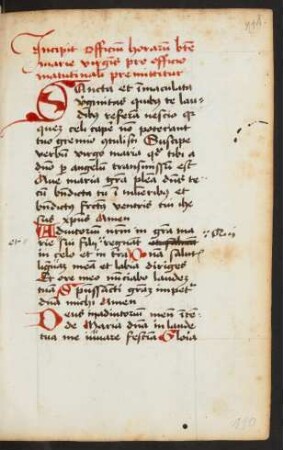 Incipit officiu horaru bte
marie virgis pro officio
matutinali premittitur
Sancta et imaculata
virginitas quibz te lau-
dibz referā nescio q
quez celi cape nō poterant
tuo gremio ctulisti Suscipe
verbu virgo maria qd tibi a
dno p angelum transmissu est
Aue maria gra plea dns te-
cu bndicta tu i mlieribz et
bndictus fructs ventris tui ihe
sus xpus Amen
Adiutoriu nrm in gra ma
rie sui filij regnat
in celo et in tra
linguaz mea et labia diriges
Et ore meo nuciabo laudez
tuaz Spussacti graz impe
dna michi Amen
Deus in adiutoriu meu ite-
de Maria dna in laude
tua me iuuare festina Gloia
et
150